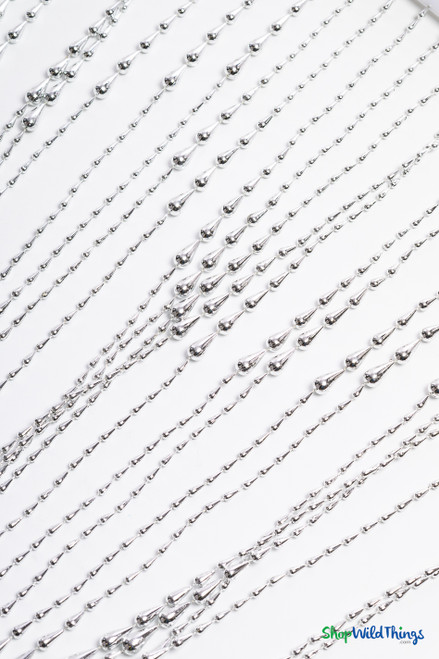 ShopWildThings
.com